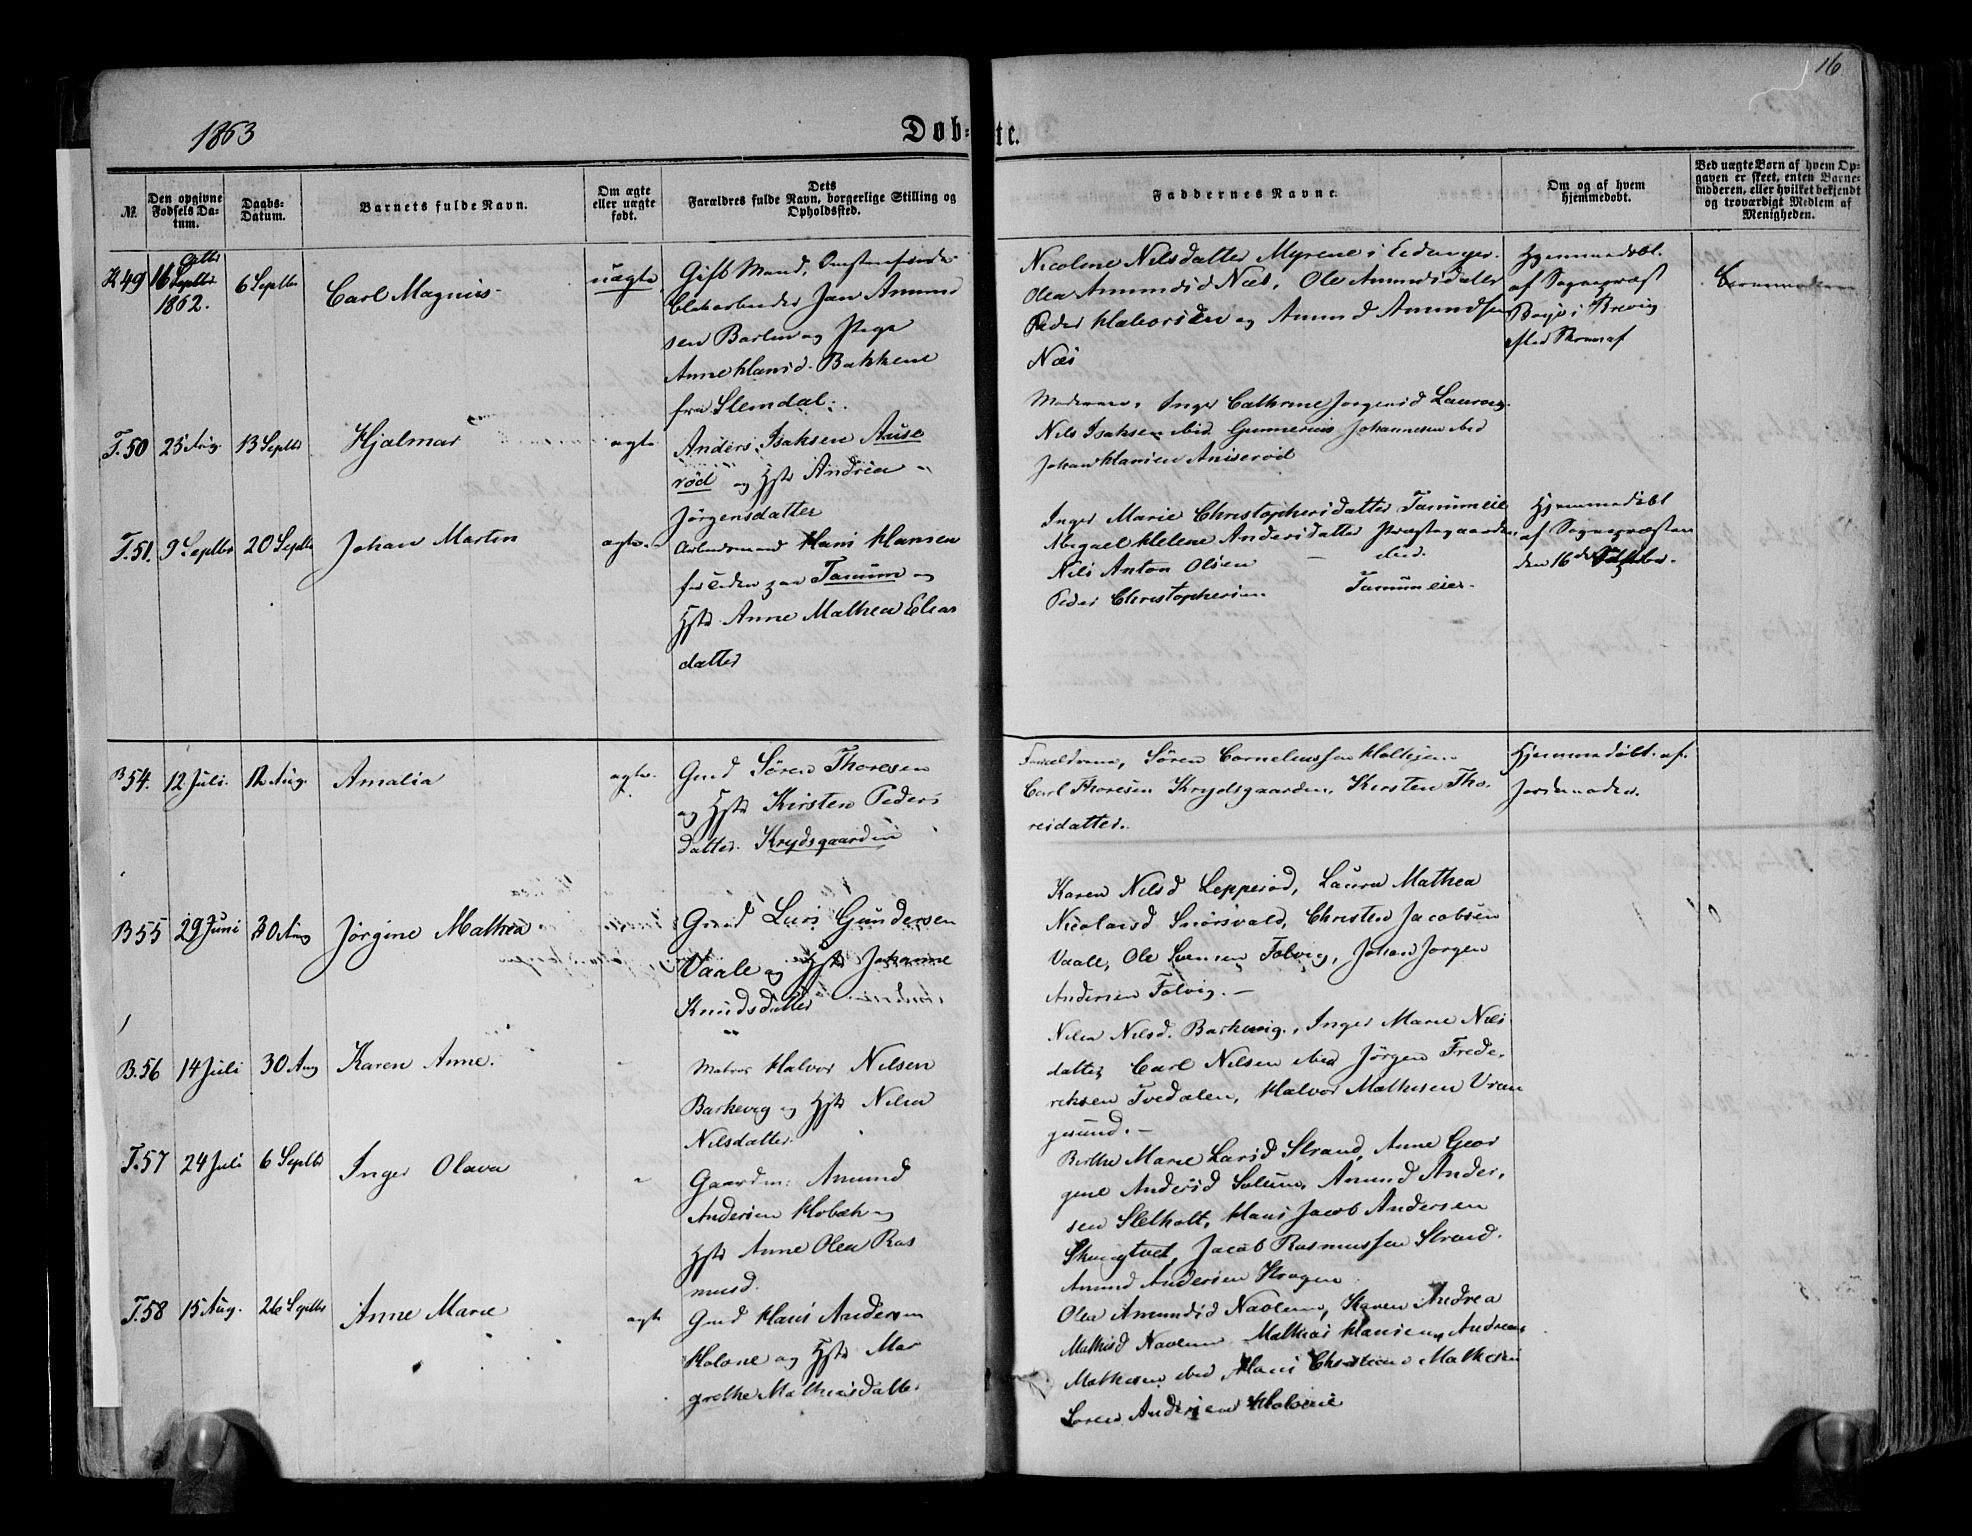 16
1863
Døb=
te.
№
Den opgivne
Fødsels Da-
tum.
Daabs-
Datum.
Barnets fulde Navn.
Om ægte
eller uægte
født.
Dets
Forældres fulde Navn, borgerlige Stilling og
Opholdssted.
Faddernes Navne.
Om og af hvem
hjemmedøbt.
Ved uægte Børn af hvem Op-
gaven er skeet, enten Barne-
moderen, eller hvilket bekjendt
og troværdigt Medlem af
Menigheden.
K 49
16 Septbr
1862.
6 Septbr
Carl Magnus
uægte
Gift Mand,
Jan Amund
sen Barlin og Pige
Anne Hansd. Bakkene
fra Slemdal.
Nicoline Nilsdatter Myrene i Eidanger.
Olea Amundsd Næs, Ole Amundsdatter
Peder Halvorsen og Amund Amundsen
Næs
Hjemmedøbt
af Sognepræst
i Brevig
Barnemoderen
T. 50
25 Aug.
13 Septbr
Hjalmar
ægte
Anders Isaksen Anise
rød og Hstr Andrea
Jørgensdatter
Moderen, Inger Cathrine Jørgensd
Nils Isaksen ibid Gunnerius Johannesen ibid
Johan Hansen Aniserød
T. 51.
9 Septbr
20 Septbr
Johan Martin
ægte
Arbeidsmand Hans Hansen
paa Tanum og
Hstr Anne Mathea Elias
datter
Inger Marie Christophersdatter Tanumeie
Abigael Helene Andersdatter Præstegaarden
Nils Anton Olsen — ibid.
Peder Christophersen Tanumeie.
Hjemmedøbt
af Sognepræsten
den 16de Septbr.
B 54.
12 Juli.
12 Aug.
Amalia
ægte.
Gmd Søren Thoresen
og Hstr Kirsten Peders
datter. Krydsgaarden
Forældrene, Søren Corneliussen
Carl Thoresen Krydsgaarden, Kirsten Tho-
resdatter.
Hjemmedøbt af
Jordemoder.
B 55
29 Juni
30 Aug
Jørgine Mathea
Gmd Lars Gundersen
Vaale og Hstr Johanne
Knudsdatter
Karen Nilsd Lepperød, Laura Mathea
Nicolaisd Snørsvald, Christen Jacobsen
Vaale, Ole Svensen Folvig, Johan Jørgen
Andersen Folvig. —
B. 56
14 Juli
30 Aug
Karen Anne.
"
Matros Halvor Nilsen
Barkevig og Hstr Nilea
Nilsdatter.
Nilea Nilsd. Barkevig, Inger Marie Nils
datter, Carl Nilsen ibid Jørgen Frede-
riksen Tvedalen, Halvor Mathisen Vran
gsund. —
T. 57
24 Juli
6 Septbr
Inger Olava
"
Gaardm: Amund
Andersen Hobæk og
Hstr Anne Olea Ras
musd.
Berthe Marie Larsd Strand, Anne Geor
gine Andersd Solum, Amund Ander-
sen Sletholt, Hans Jacob Andersen
Skaugtvet, Jacob Rasmussen Strand.
Amund Andersen Krogen
T. 58
15 Aug.
26 Septbr
Anne Marie
ægte
Gmd Hans Andersen
Holone og Hstr Mar
grethe Mathiasdatter
Olea Amundsd Navlum, Karen Andrea
Mathisd Navlum Mathias Hansen, Andreas
Mathisen ibid Hans Christian Mathisen
Søren Andersen Holone